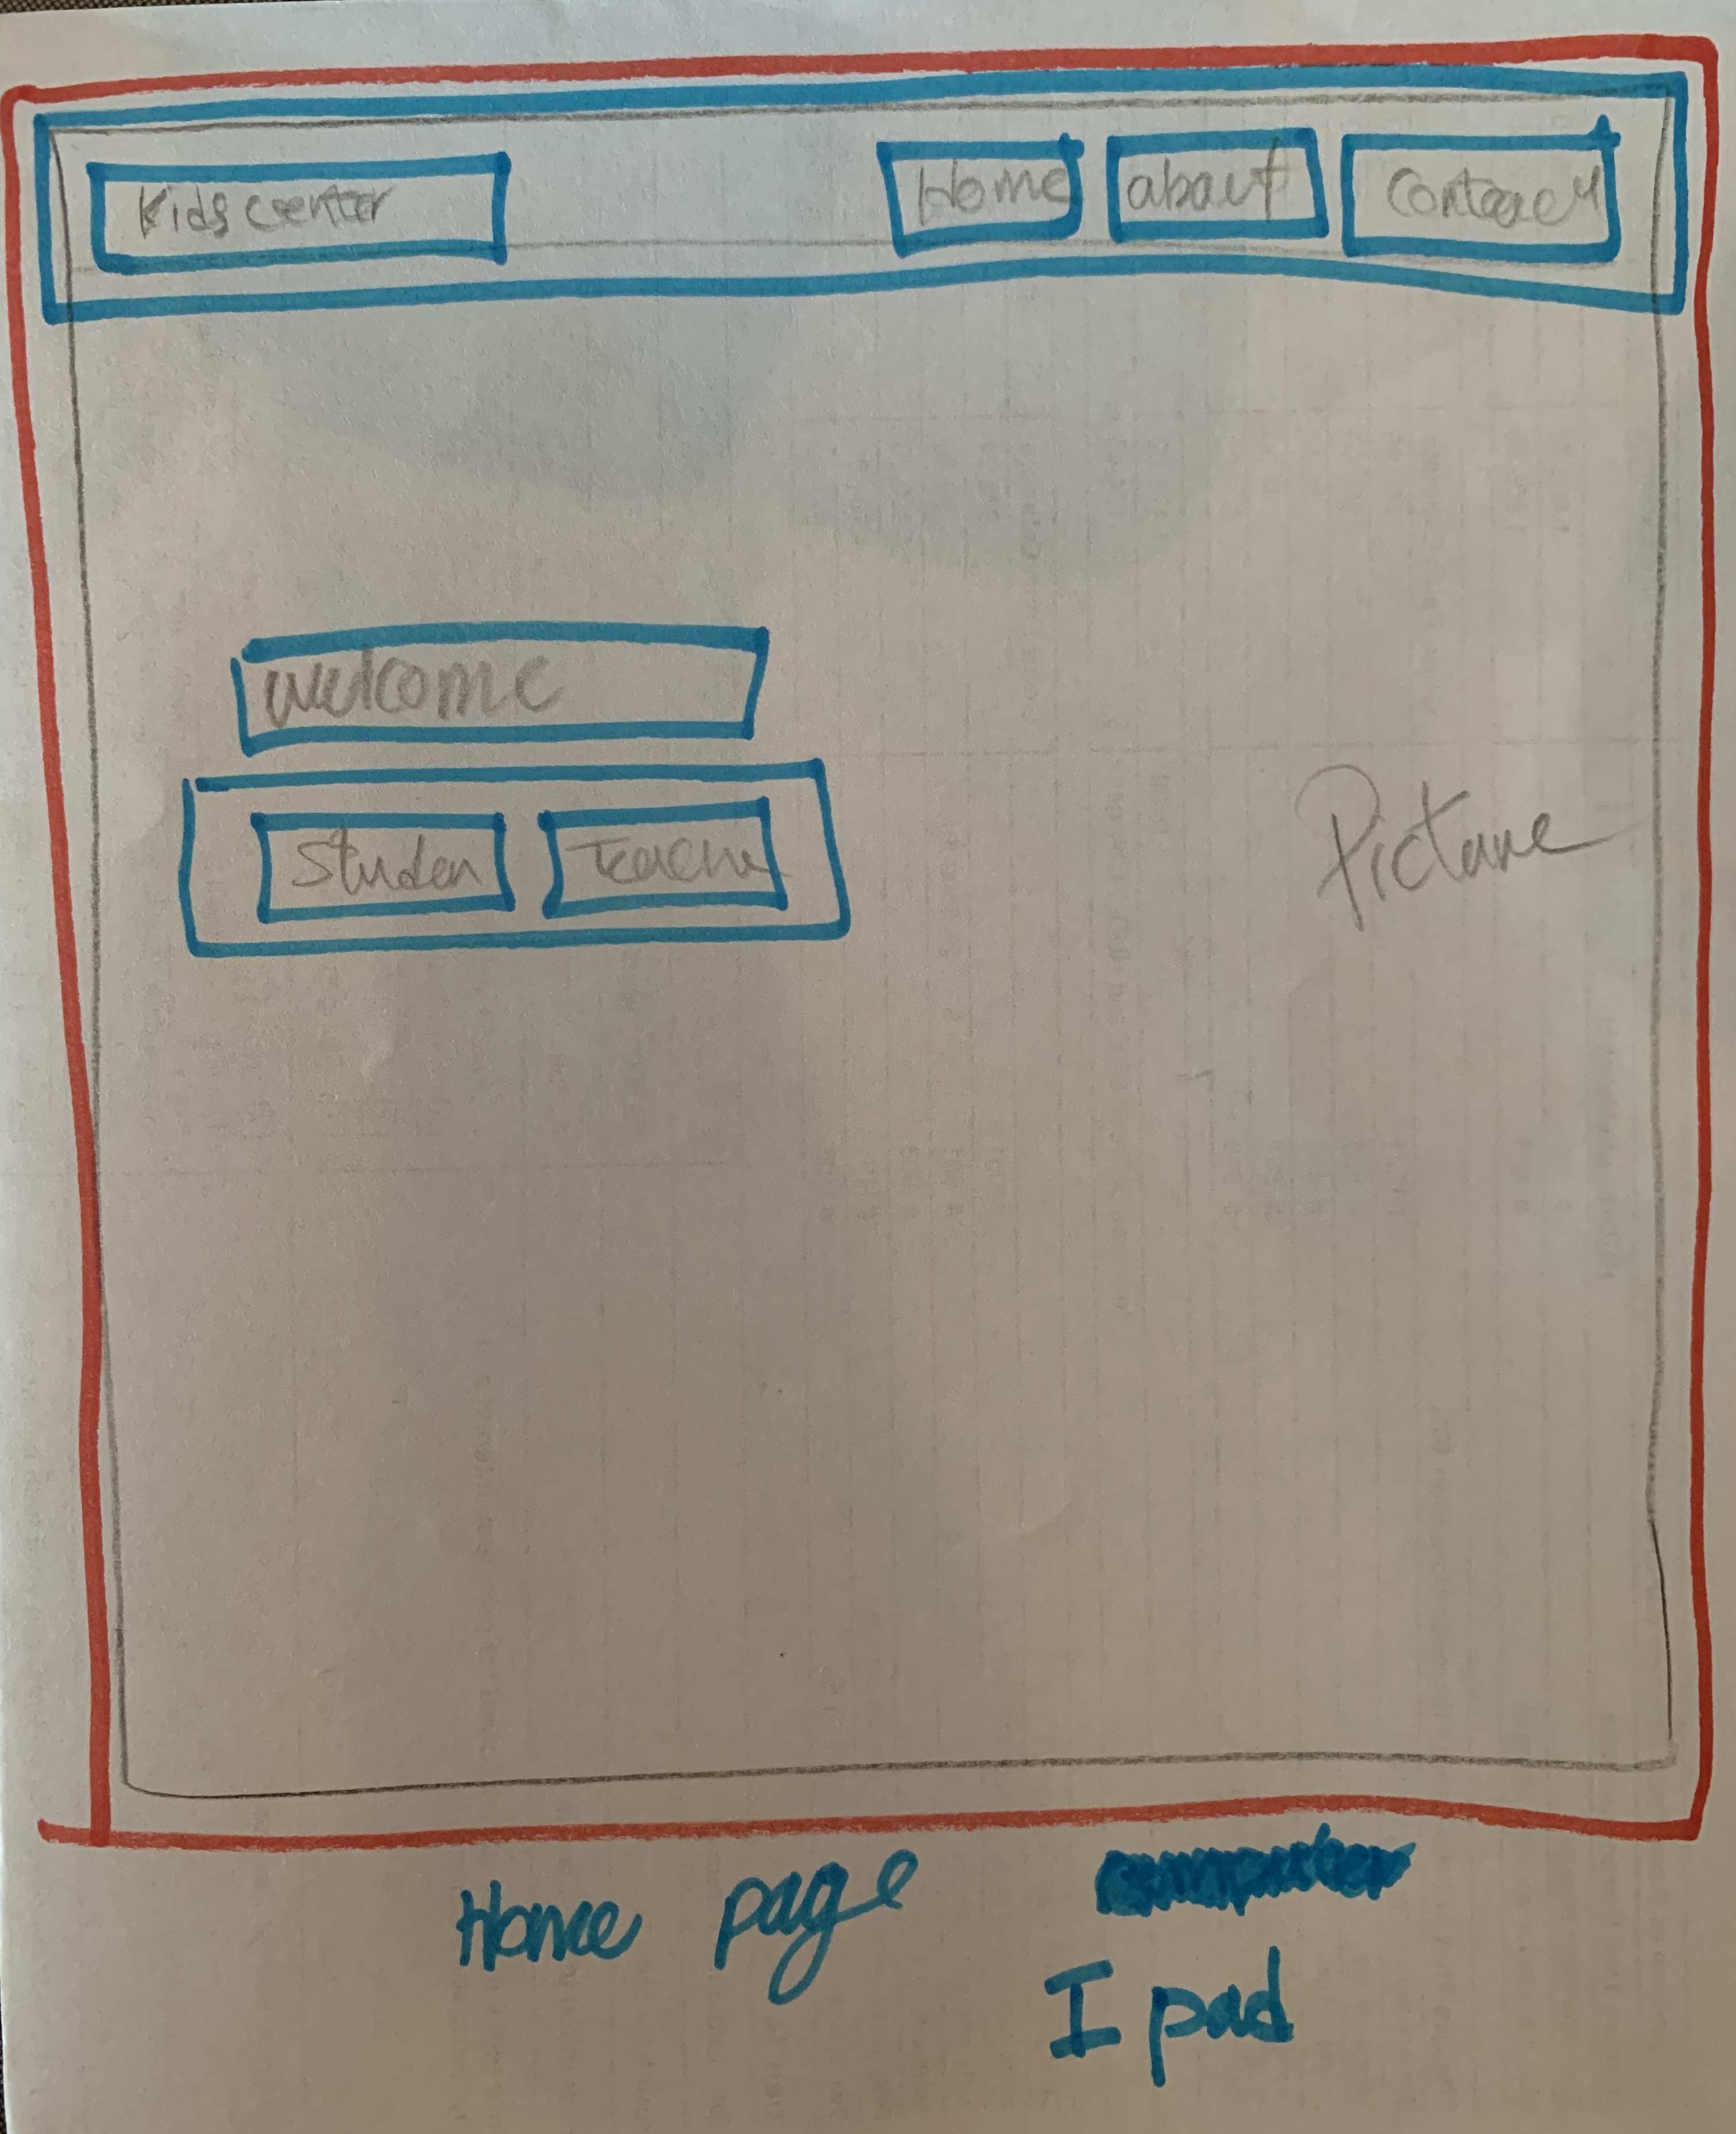 Kids center Home about Contact
welcome
Studen Teache
Picture
Home page
I pad